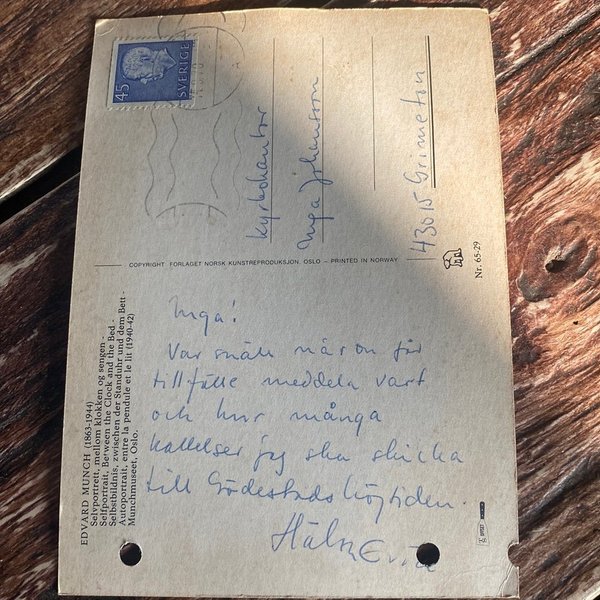 EDVARD MUNCH (1863-1944)
Selvportrett, mellom klokken og sengen -
Selfportrait, Between the Clock and the Bed -
Selbstbildnis, zwischen der Standuhr und dem Bett -
Autoportrait, entre la pendule et le lit (1940-42)
Munchmuseet, Oslo.
45
SVERIGE
Kyrkokantor
Inga Johansson
43015 Grimeton
COPYRIGHT FORLAGET NORSK KUNSTREPRODUKSJON, OSLO – PRINTED IN NORWAY
Nr. 65-29
Inga!
Var snäll när on får
tillfälle meddela vart
och hur många
kallelser jag ska skicka
till Gödestadshögtiden.
Hälsn